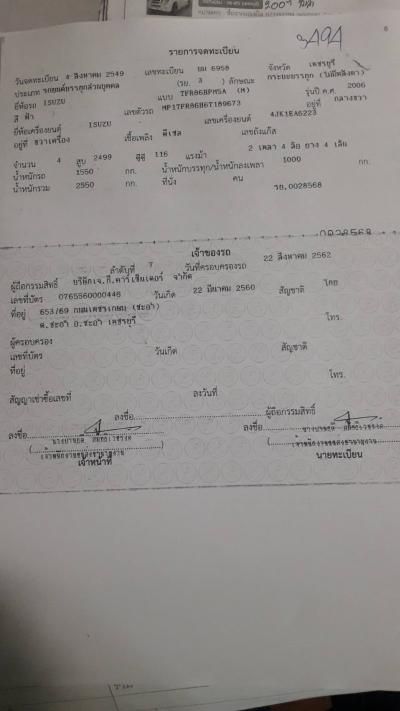 3494
6
รายการจดทะเบียน
วันจดทะเบียน 4 สิงหาคม 2549 เลขทะเบียน บม 6958 จังหวัด เพชรบุรี
ประเภท รถยนต์บรรทุกส่วนบุคคล (รย. 3 ) ลักษณะ กระบะบรรทุก (ไม่มีหลังคา)
ยี่ห้อรถ ISUZU แบบ TFR86BPM5A (M) รุ่นปี ค.ศ. 2006
สี ฟ้า เลขตัวรถ MP1TFR86H6T189673 อยู่ที่ กลางขวา
ยี่ห้อเครื่องยนต์ ISUZU เลขเครื่องยนต์ 4JK1EA6223
อยู่ที่ ขวาเครื่อง เชื้อเพลิง ดีเซล เลขถังแก๊ส
จำนวน 4 สูบ 2499 ซีซี 116 แรงม้า 2 เพลา 4 ล้อ ยาง 4 เส้น
น้ำหนักรถ 1550 กก. น้ำหนักบรรทุก/น้ำหนักลงเพลา 1000 กก.
น้ำหนักรวม 2550 กก. ที่นั่ง คน
รย.0028568
เจ้าของรถ
ลำดับที่ 7 วันที่ครอบครองรถ 22 สิงหาคม 2562
ผู้ถือกรรมสิทธิ์ บริษัทเจ.ที.คาร์เซ็นเตอร์ จำกัด
เลขที่บัตร 0765560000446 วันเกิด 22 มีนาคม 2560 สัญชาติ ไทย
ที่อยู่ 653/69 ถนนเพชรเกษม (ชะอำ)
ต.ชะอำ อ.ชะอำ เพชรบุรี โทร.
ผู้ครอบครอง
เลขที่บัตร วันเกิด สัญชาติ
ที่อยู่
โทร.
สัญญาเช่าซื้อเลขที่ ลงวันที่
ลงชื่อ ผู้ถือกรรมสิทธิ์
ลงชื่อ ลงชื่อ
เจ้าหน้าที่ นายทะเบียน